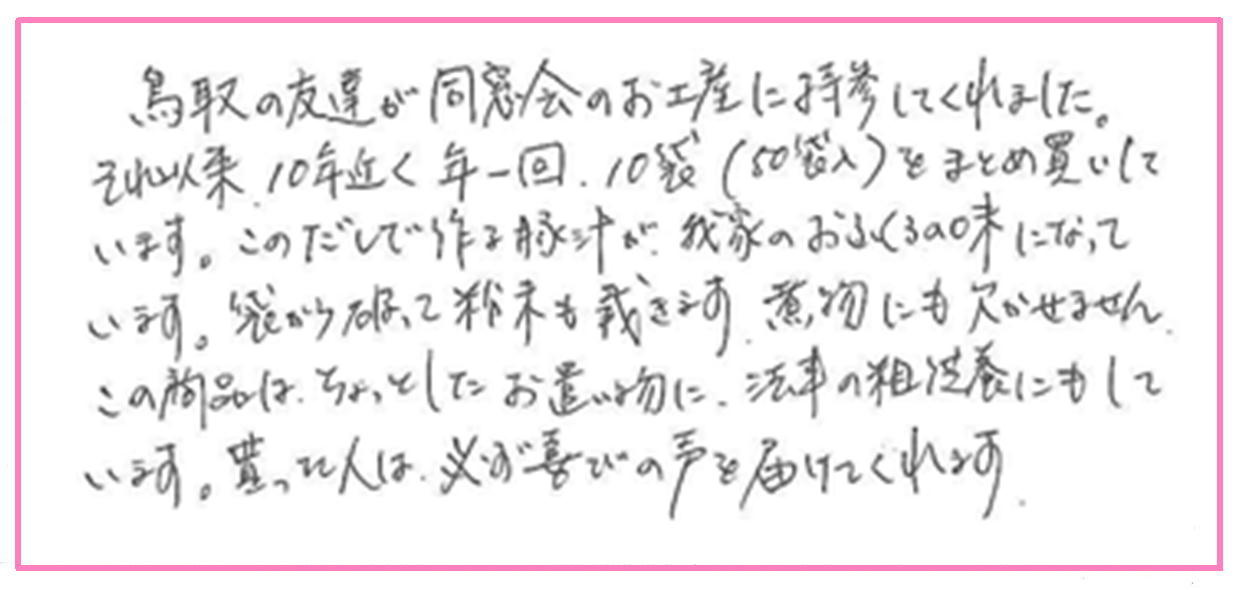 鳥取の友達が同窓会のお土産に持参してくれました。
それ以来、10年近く年一回、10袋(50袋入)をまとめ買いして
います。このだしで作る豚汁が、我家のおふくろの味になって
います。袋から破って粉末も戴きます。煮物にも欠かせません。
この商品は、ちょっとしたお遣い物に、法事の粗供養にもして
います。貰った人は、必ず喜びの声を届けてくれます。